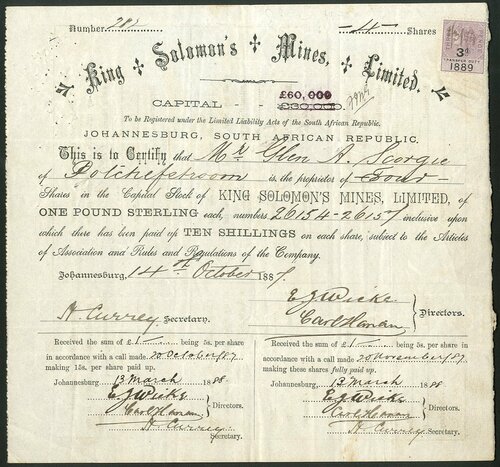 Number 282 —4— Shares
King Solomon's Mines, Limited.
3d
TRANSFER DUTY
1889
£60,000
CAPITAL - - £30,000.
To be Registered under the Limited Liability Acts of the South African Republic.
JOHANNESBURG, SOUTH AFRICAN REPUBLIC.
This is to Certify that Mr Glen A. Scorgie
of Potchefstroom is the proprietor of Four
Shares in the Capital Stock of KING SOLOMON'S MINES, LIMITED, of
ONE POUND STERLING each, numbers 26154-26157 inclusive upon
which there has been paid up TEN SHILLINGS on each share, subject to the Articles
of Association and Rules and Regulations of the Company.
Johannesburg, 14th October 1887.
E J Wicke
H. Currey Secretary.
Carl Hanau
Directors.
Received the sum of £1 being 5s. per share
in accordance with a call made 20 October/87
making 15s. per share paid up.
Johannesburg 13 March 1888
E J Wicke
Carl Hanau
Directors.
H Currey
Secretary.
Received the sum of £1 being 5s. per share
in accordance with a call made 20 November/87
making these shares fully paid up.
Johannesburg, 13 March 1888
E J Wicke
Carl Hanau
Directors.
H Currey
Secretary.